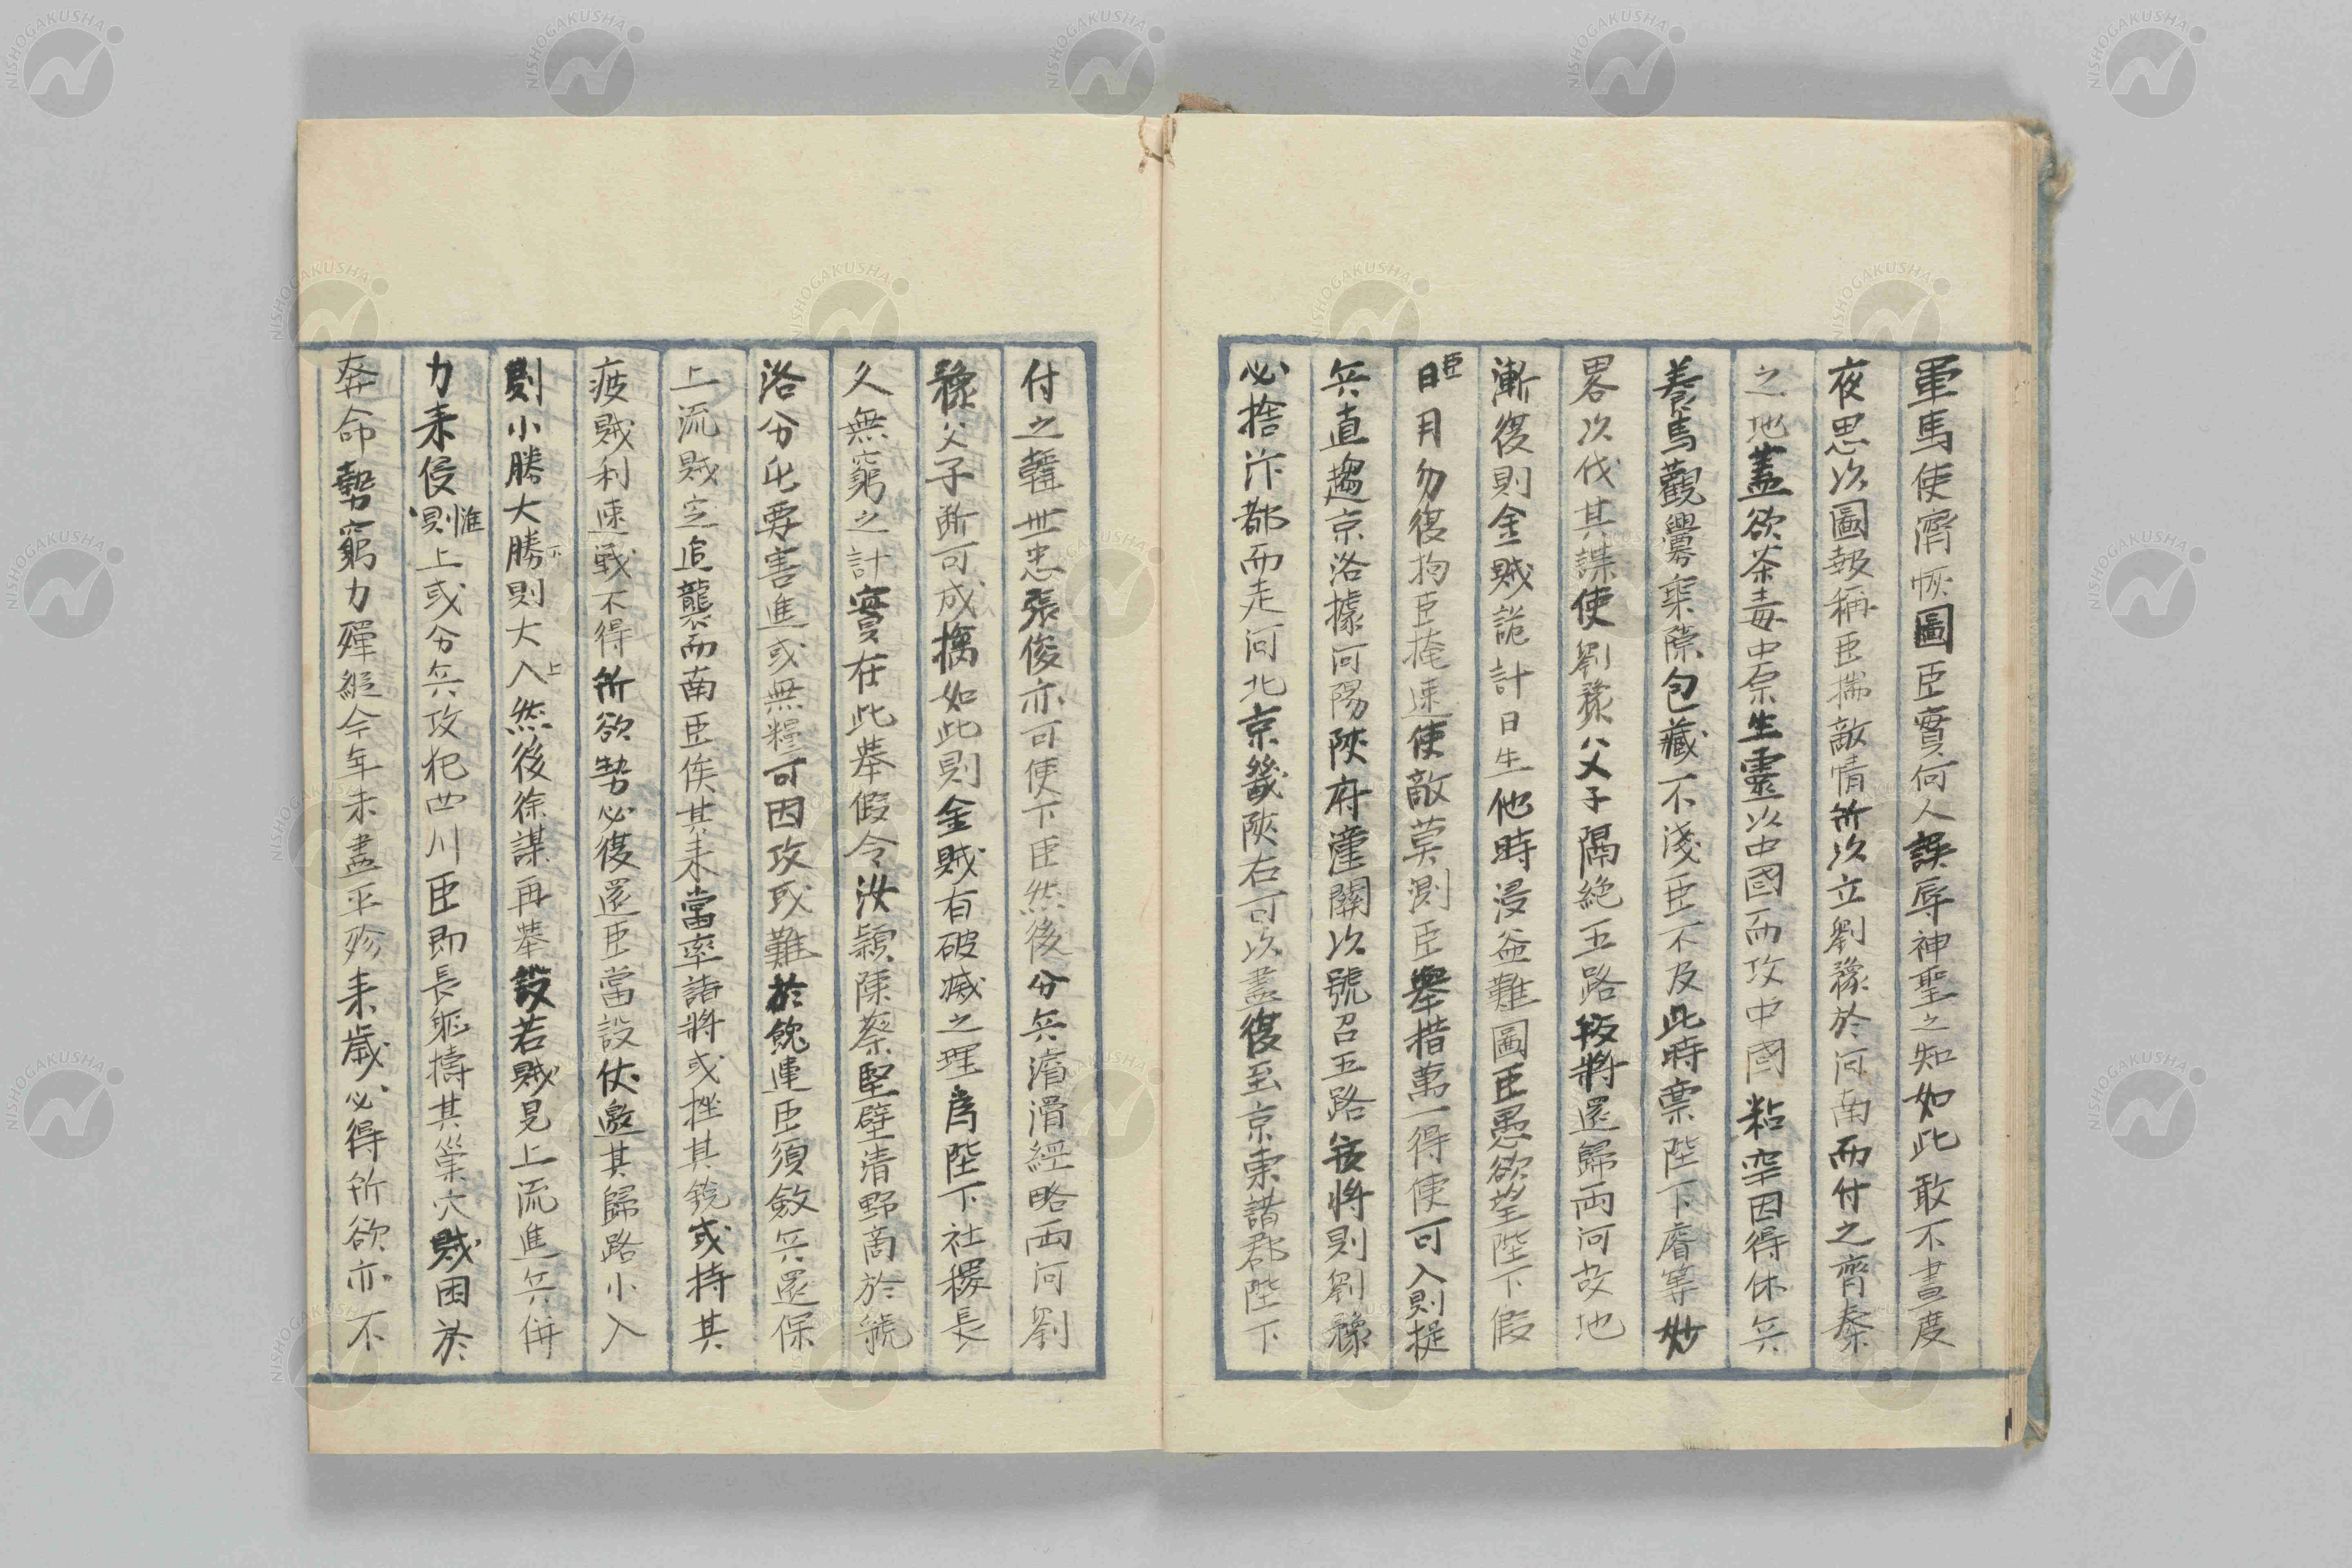 軍馬使濟恢圖臣實何人誤辱神聖之知如此敢不晝度
夜思以圖報稱臣揣敵情所以立劉豫於河南而付之齊秦
之地蓋欲荼毒中原生靈以中國而攻中國粘罕因得休兵
養馬觀釁乗隙包藏不淺臣不及此時禀陛下睿筭妙
畧以伐其謀使劉豫父子隔絶五路叛將還歸兩河故地
漸復則金賊詭計日生他時浸益難圖臣愚欲望陛下假
臣日月勿復拘臣掩速使敵莫測臣舉措萬一得便可入則提
兵直趨京洛據河陽陝府潼關以號召五路叛將則劉豫
必捨汴都而走河北京畿陝右可以盡復至京東諸郡陛下
付之韓世忠張俊亦可使下臣然後分兵濬滑經略両河劉
豫父子斷可成擒如此則金賊有破滅之理為陛下社稷長
久無窮之計實在此舉假令汝頴陳蔡堅壁清野商於虢
洛分屯要害進或無糧可因攻或難於餽運臣須斂兵還保
上流賊定追襲而南臣俟其来當率諸將或挫其銳或持其
疲賊利速戰不得所欲勢必復還臣當設伏邀其歸路小入
則小勝大勝下則大入上然後徐謀再舉設若賊見上流進兵併
力来侵惟則上或分兵攻犯四川臣即長驅擣其巢穴賊困於
奔命勢窮力殫縦今年未盡平殄来歳必得所欲亦不
NISHOGAKUSHA